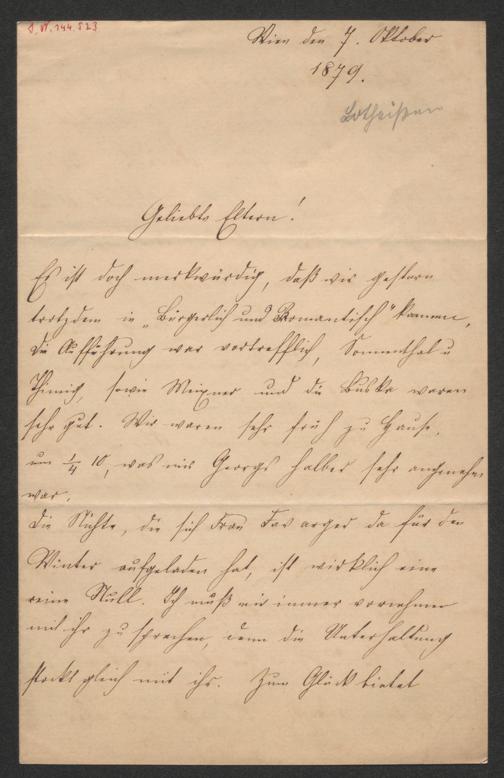 J. N. 144.523
Wien den 7. Oktober
1879.
Lotheißen
Geliebte Eltern!
Es ist doch merkwürdig, daß wir gestern
trotzdem in „Bürgerlich und Romantisch" kamen,
die Aufführung war vortrefflich, Sonnenthal u
Thimig, sowie Meixner und die Buska waren
sehr gut. Wir waren sehr früh zu Hause,
um ¼ 10, was mir Georgs halber sehr angenehm
war.
Die Nichte, die sich Frau Favarger da für den
Winter aufgeladen hat, ist wirklich eine
reine Null. Ich muß mir immer vornehmen
mit ihr zu sprechen, denn die Unterhaltung
stockt gleich mit ihr. Zum Glück bietet